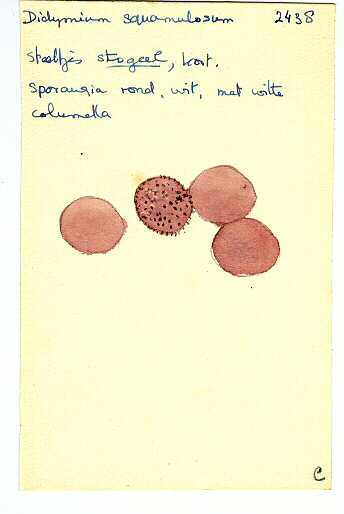 Didymium squamulosum 2438
Steeltjes strogeel, kort.
Sporangia rond, wit, met witte
columella
C